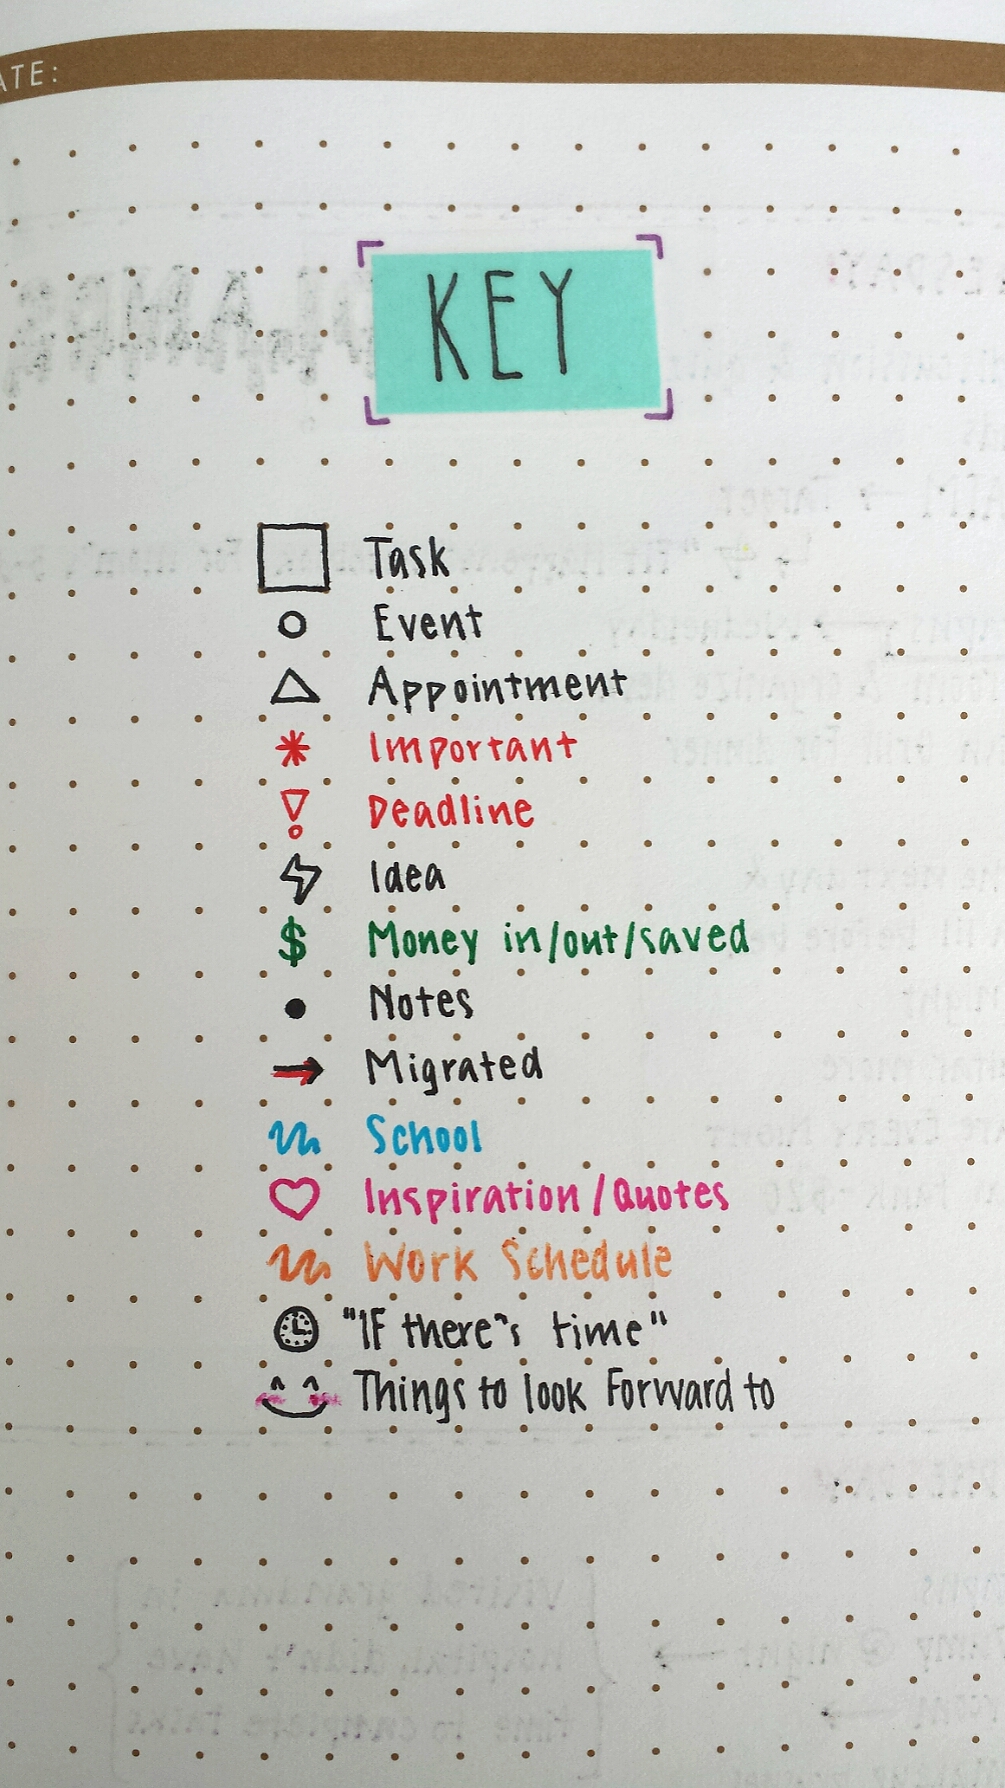 ATE:
KEY
Task
Event
Appointment
Important
Deadline
Idea
$ Money in/out/saved
Notes
Migrated
School
Inspiration/Quotes
Work Schedule
"If there's time"
Things to look forward to